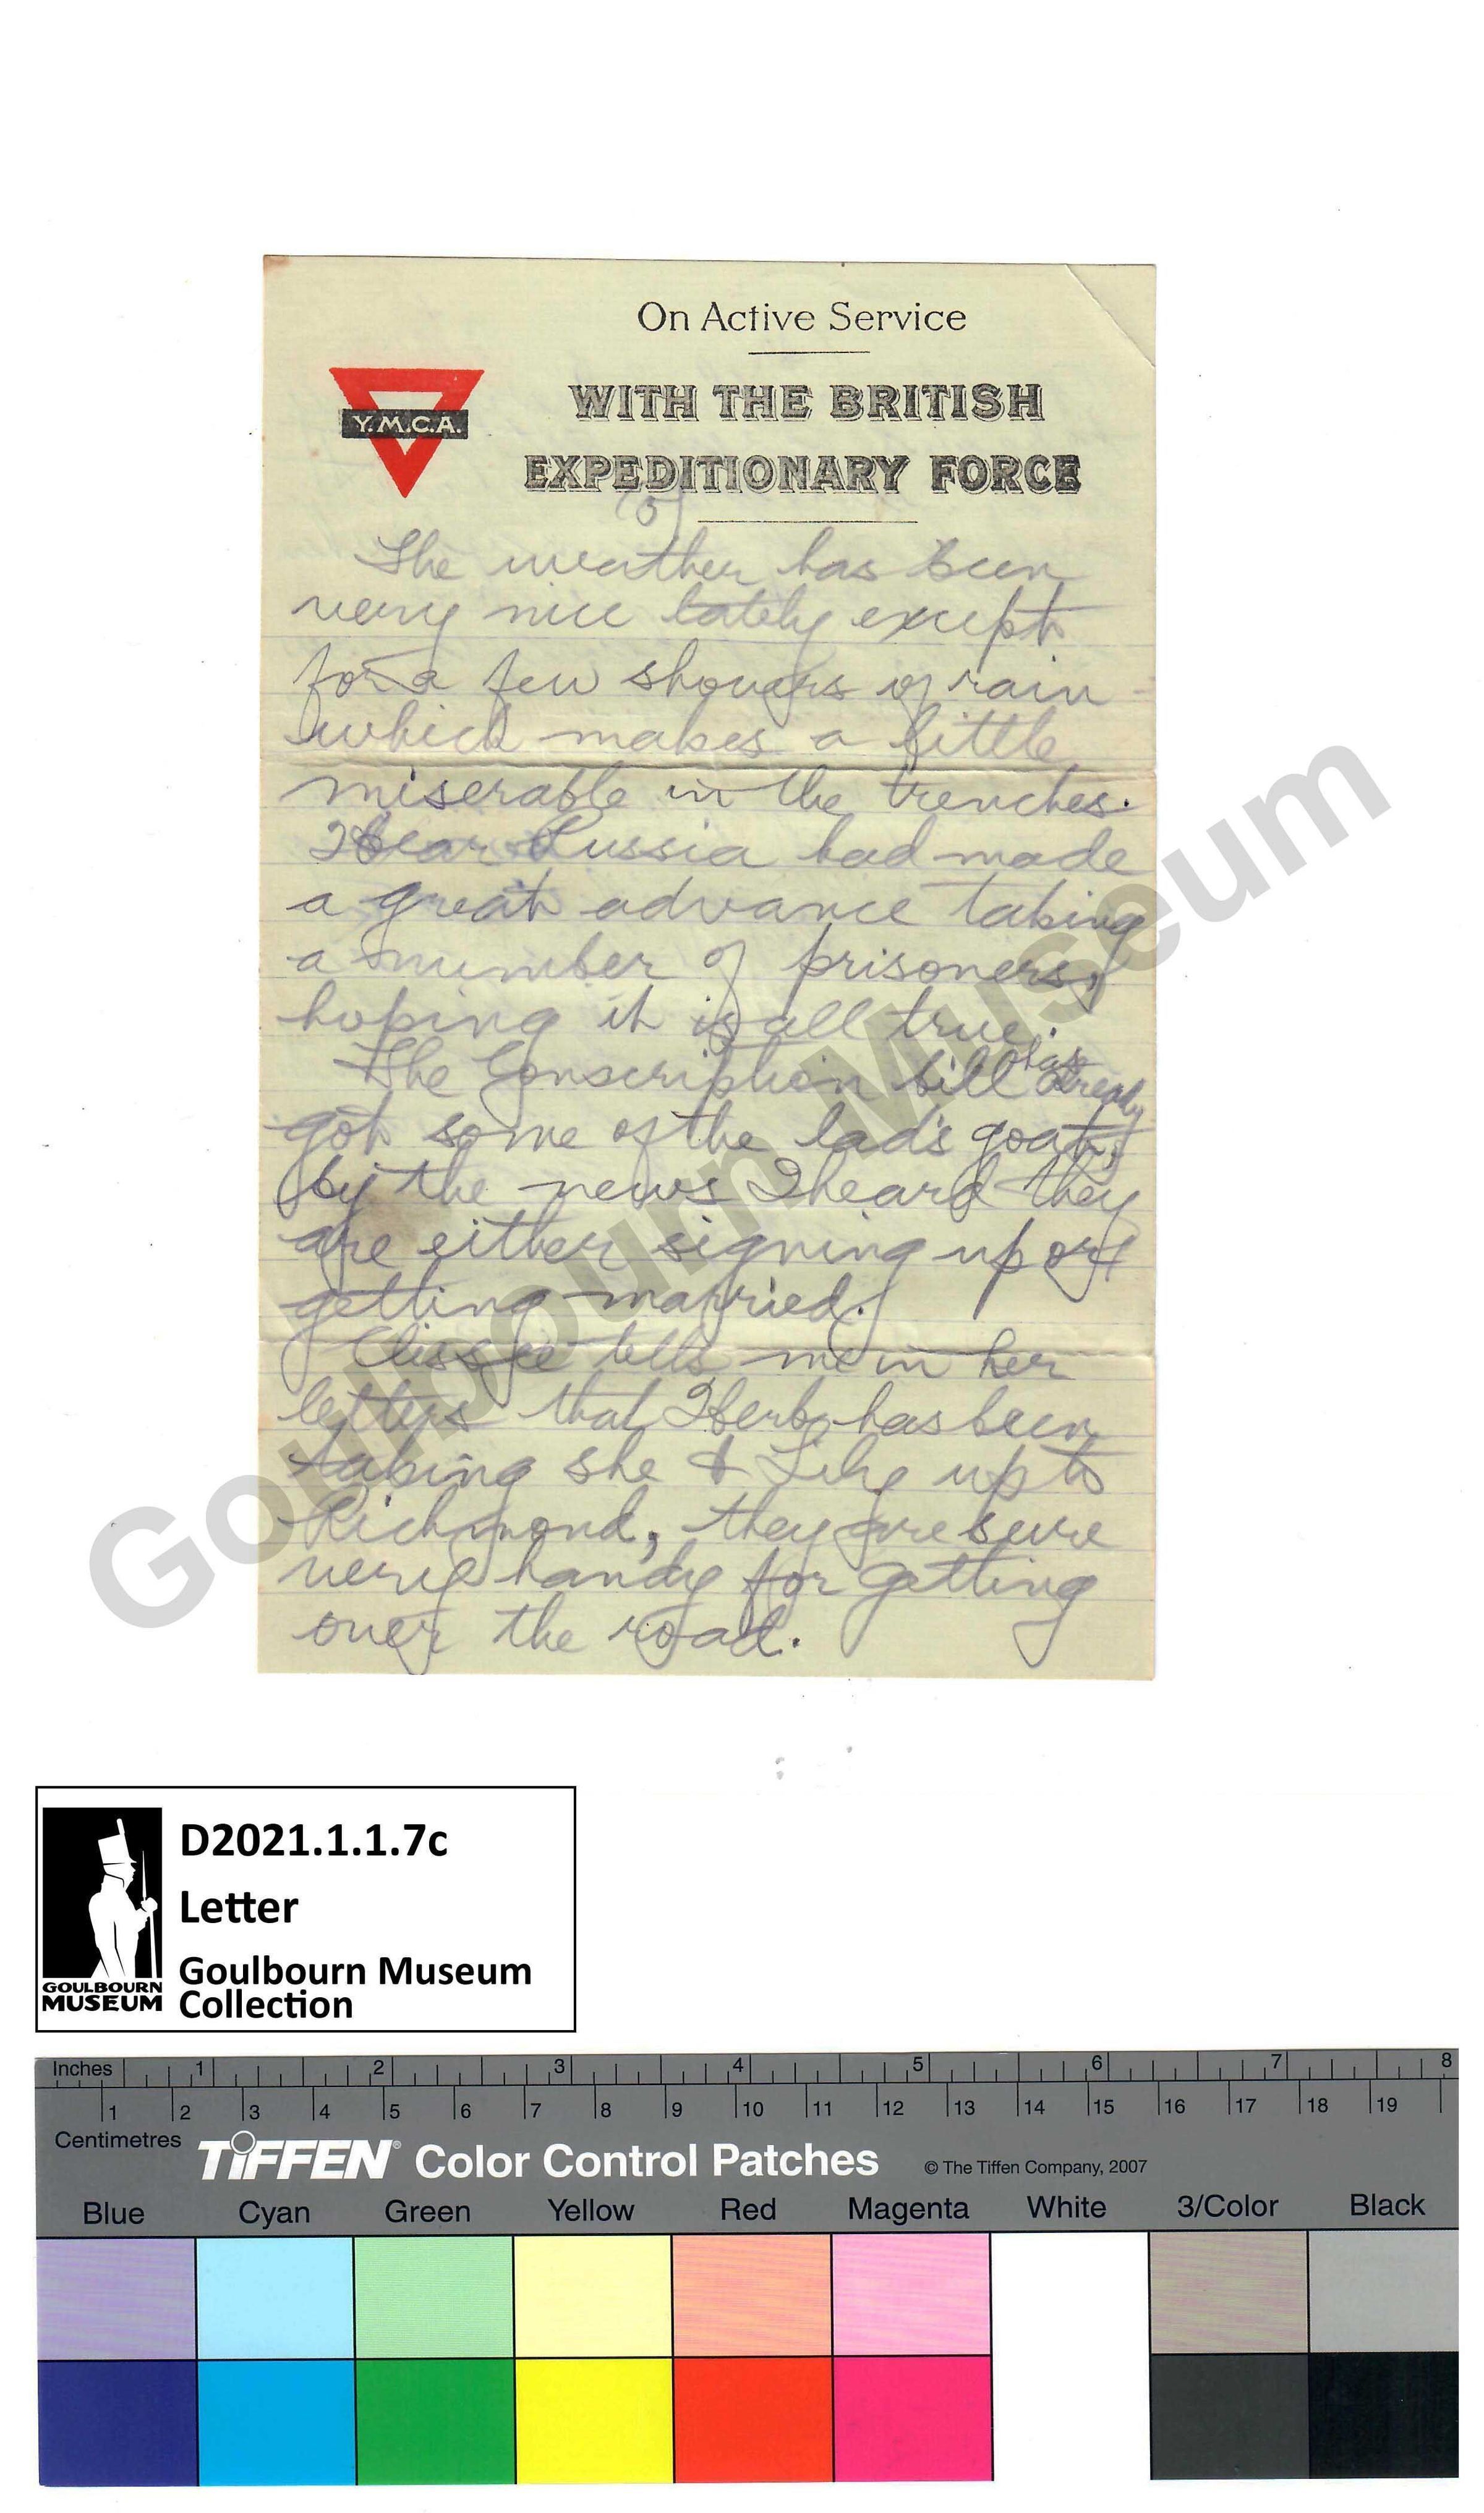 On Active Service
WITH THE BRITISH
EXPEDITIONARY FORCE
Y.M.C.A.
(5)
The weather has been
very nice lately except
for a few showers of rain
which makes a little
miserable in the trenches.
Hear Russia had made
a great advance taking
a number of prisoners,
hoping it is all true.
The Conscription bill has already
got some of the lad's goat,
by the news I heard they
are either signing up or
getting married.
tells me in her
letters that Herb has been
taking she & up to
Richmond, they are sure
very handy for getting
over the road.
Goulbourn Museum
D2021.1.1.7c
Letter
Goulbourn Museum
Collection
GOULBOURN
MUSEUM
Inches 1 2 3 4 5 6 7 8
1 2 3 4 5 6 7 8 9 10 11 12 13 14 15 16 17 18 19
Centimetres
TIFFEN® Color Control Patches © The Tiffen Company, 2007
Blue Cyan Green Yellow Red Magenta White 3/Color Black